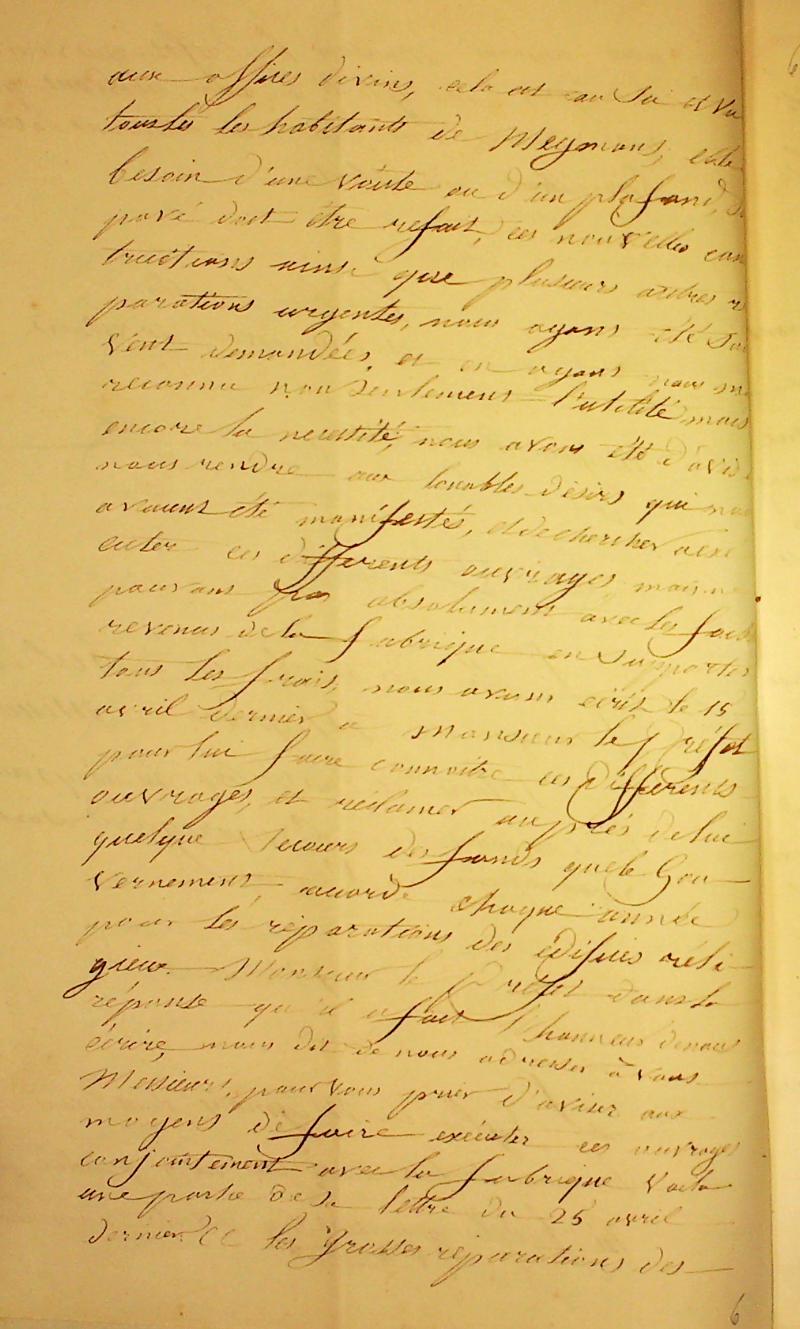 aux offices divins, cela est au su et vu
tous les habitants de Meymans, elle
besoin d'une voûte ou d'un plafond,
pavé doit être refait, ces nouvelles con
tructions ainsi que plusieurs autres r
parations urgentes, nous ayans été sou
vent demandées, et en ayans nous m
reconnu non seulement l'utilité mais
encore la necessité, nous avons été d'avis
nous rendre aux louables désirs qui nou
avaient été manifestés, et de chercher a exé
cuter ces différents ouvrages, mais ne
pouvant pas absolument avec les faib
revenus de la fabrique en supporter
tous les frais, nous avons écrit le 15
avril dernier a Monsieur le Préfet
pour lui faire connoitre ces différents
ouvrages, et réclamer auprès de lui
quelque secours des fonds que le Gou
vernement accorde chaque année
pour les réparations des édifices réli
gieux. Monsieur le Préfet dans la
réponse qu'il a fait l'honneur de nous
écrire, nous dit de nous adresser à vous
Messieurs, pour vous prier d'aviser aux
moyens de faire exécuter ces ouvrages
conjointement avec la fabrique voila
une partie de sa lettre du 25 avril
dernier. « les grosses réparations des
6